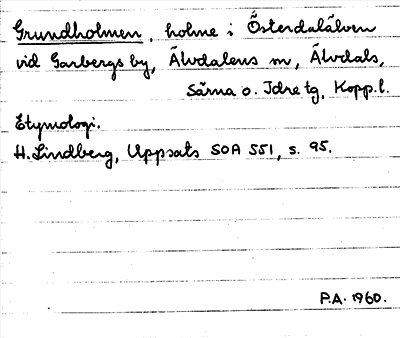 Grundholmen, holme i Österdalälven
vid Garbergs by, Älvdalens sn, Älvdals,
Särna o. Idre tg, Kopp. l.
Etymologi.
H. Lindberg, Uppsats SOA 551, s. 95.
P.A. 1960.